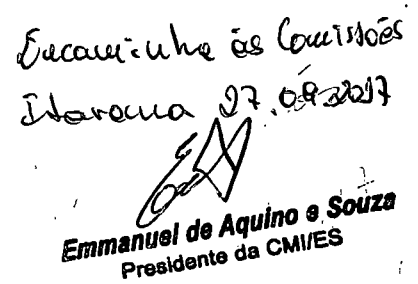 Encaminhe às Comissões
Itarana 27.09.2017
Emmanuel de Aquino e Souza
Presidente da CMI/ES